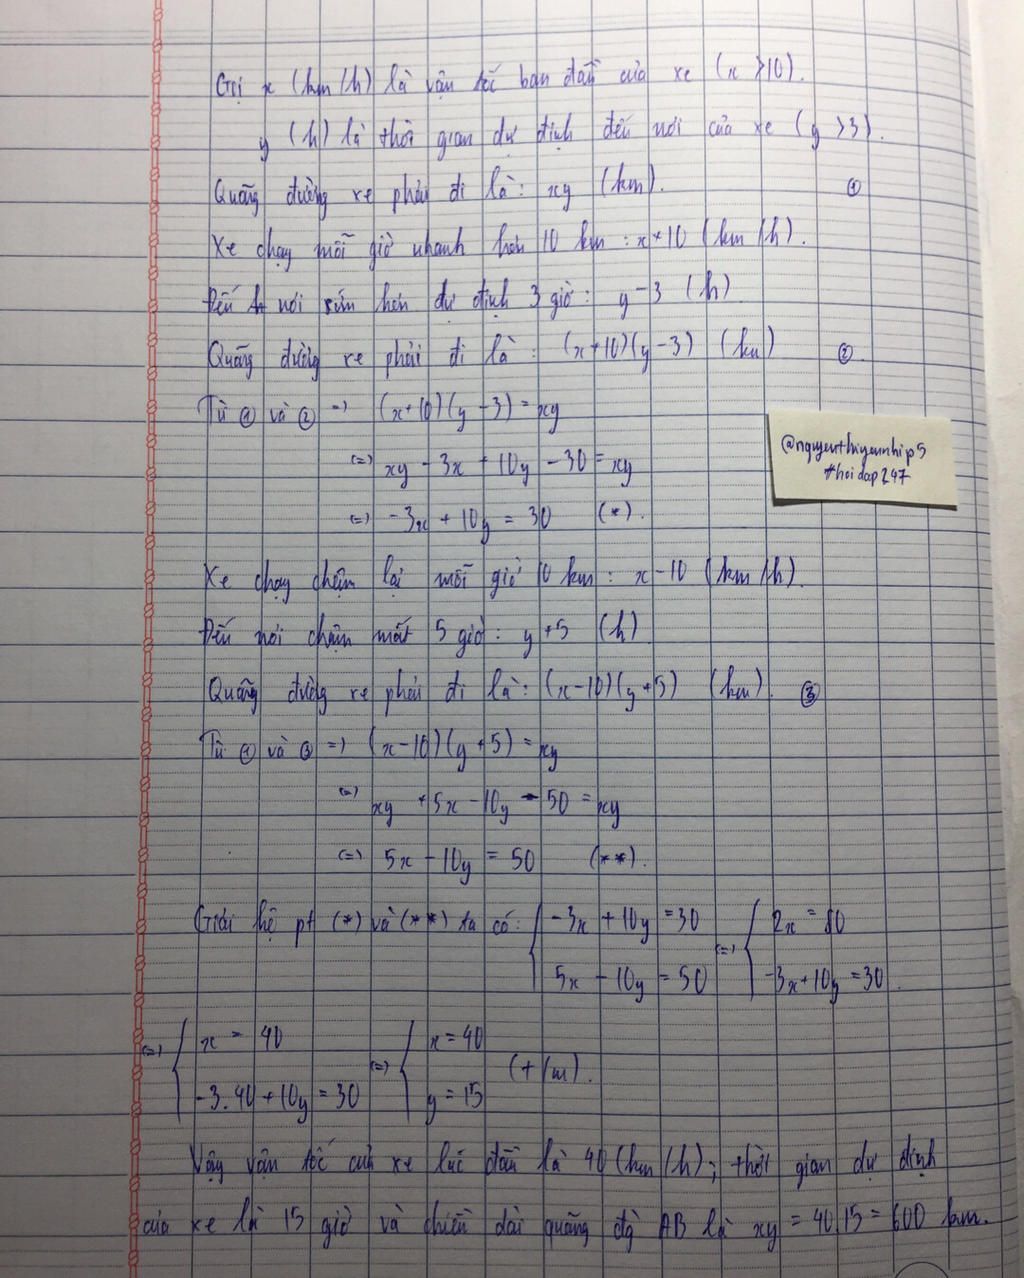 Gọi x (km/h) là vận tốc ban đầu của xe (x > 10).
y (h) là thời gian dự định đến nơi của xe (y > 3).
Quãng đường xe phải đi là: xy (km). ①
Xe chạy mỗi giờ nhanh hơn 10 km : x+10 (km/h).
Đến nơi sớm hơn dự định 3 giờ: y-3 (h)
Quãng đường xe phải đi là : (x+10)(y-3) (km) ②
Từ ① và ② => (x+10)(y-3) = xy
<=> xy - 3x + 10y - 30 = xy
@nguyenthiyennhip5
#hoidap247
<=> -3x + 10y = 30 (*).
Xe chạy chậm lại mỗi giờ 10 km : x-10 (km/h).
Đến nơi chậm mất 5 giờ: y+5 (h)
Quãng đường xe phải đi là: (x-10)(y+5) (km). ③
Từ ① và ③ => (x-10)(y+5) = xy
<=> xy + 5x - 10y - 50 = xy
<=> 5x - 10y = 50 (**).
Giải hệ pt (*) và (**) ta có: { -3x + 10y = 30 <=> { 2x = 80
5x - 10y = 50 -3x + 10y = 30.
<=> { x = 40 <=> { x = 40 (t/m).
-3.40 + 10y = 30 y = 15
Vậy vận tốc của xe lúc đầu là 40 (km/h); thời gian dự định
của xe là 15 giờ và chiều dài quãng đg AB là xy = 40.15 = 600 km.